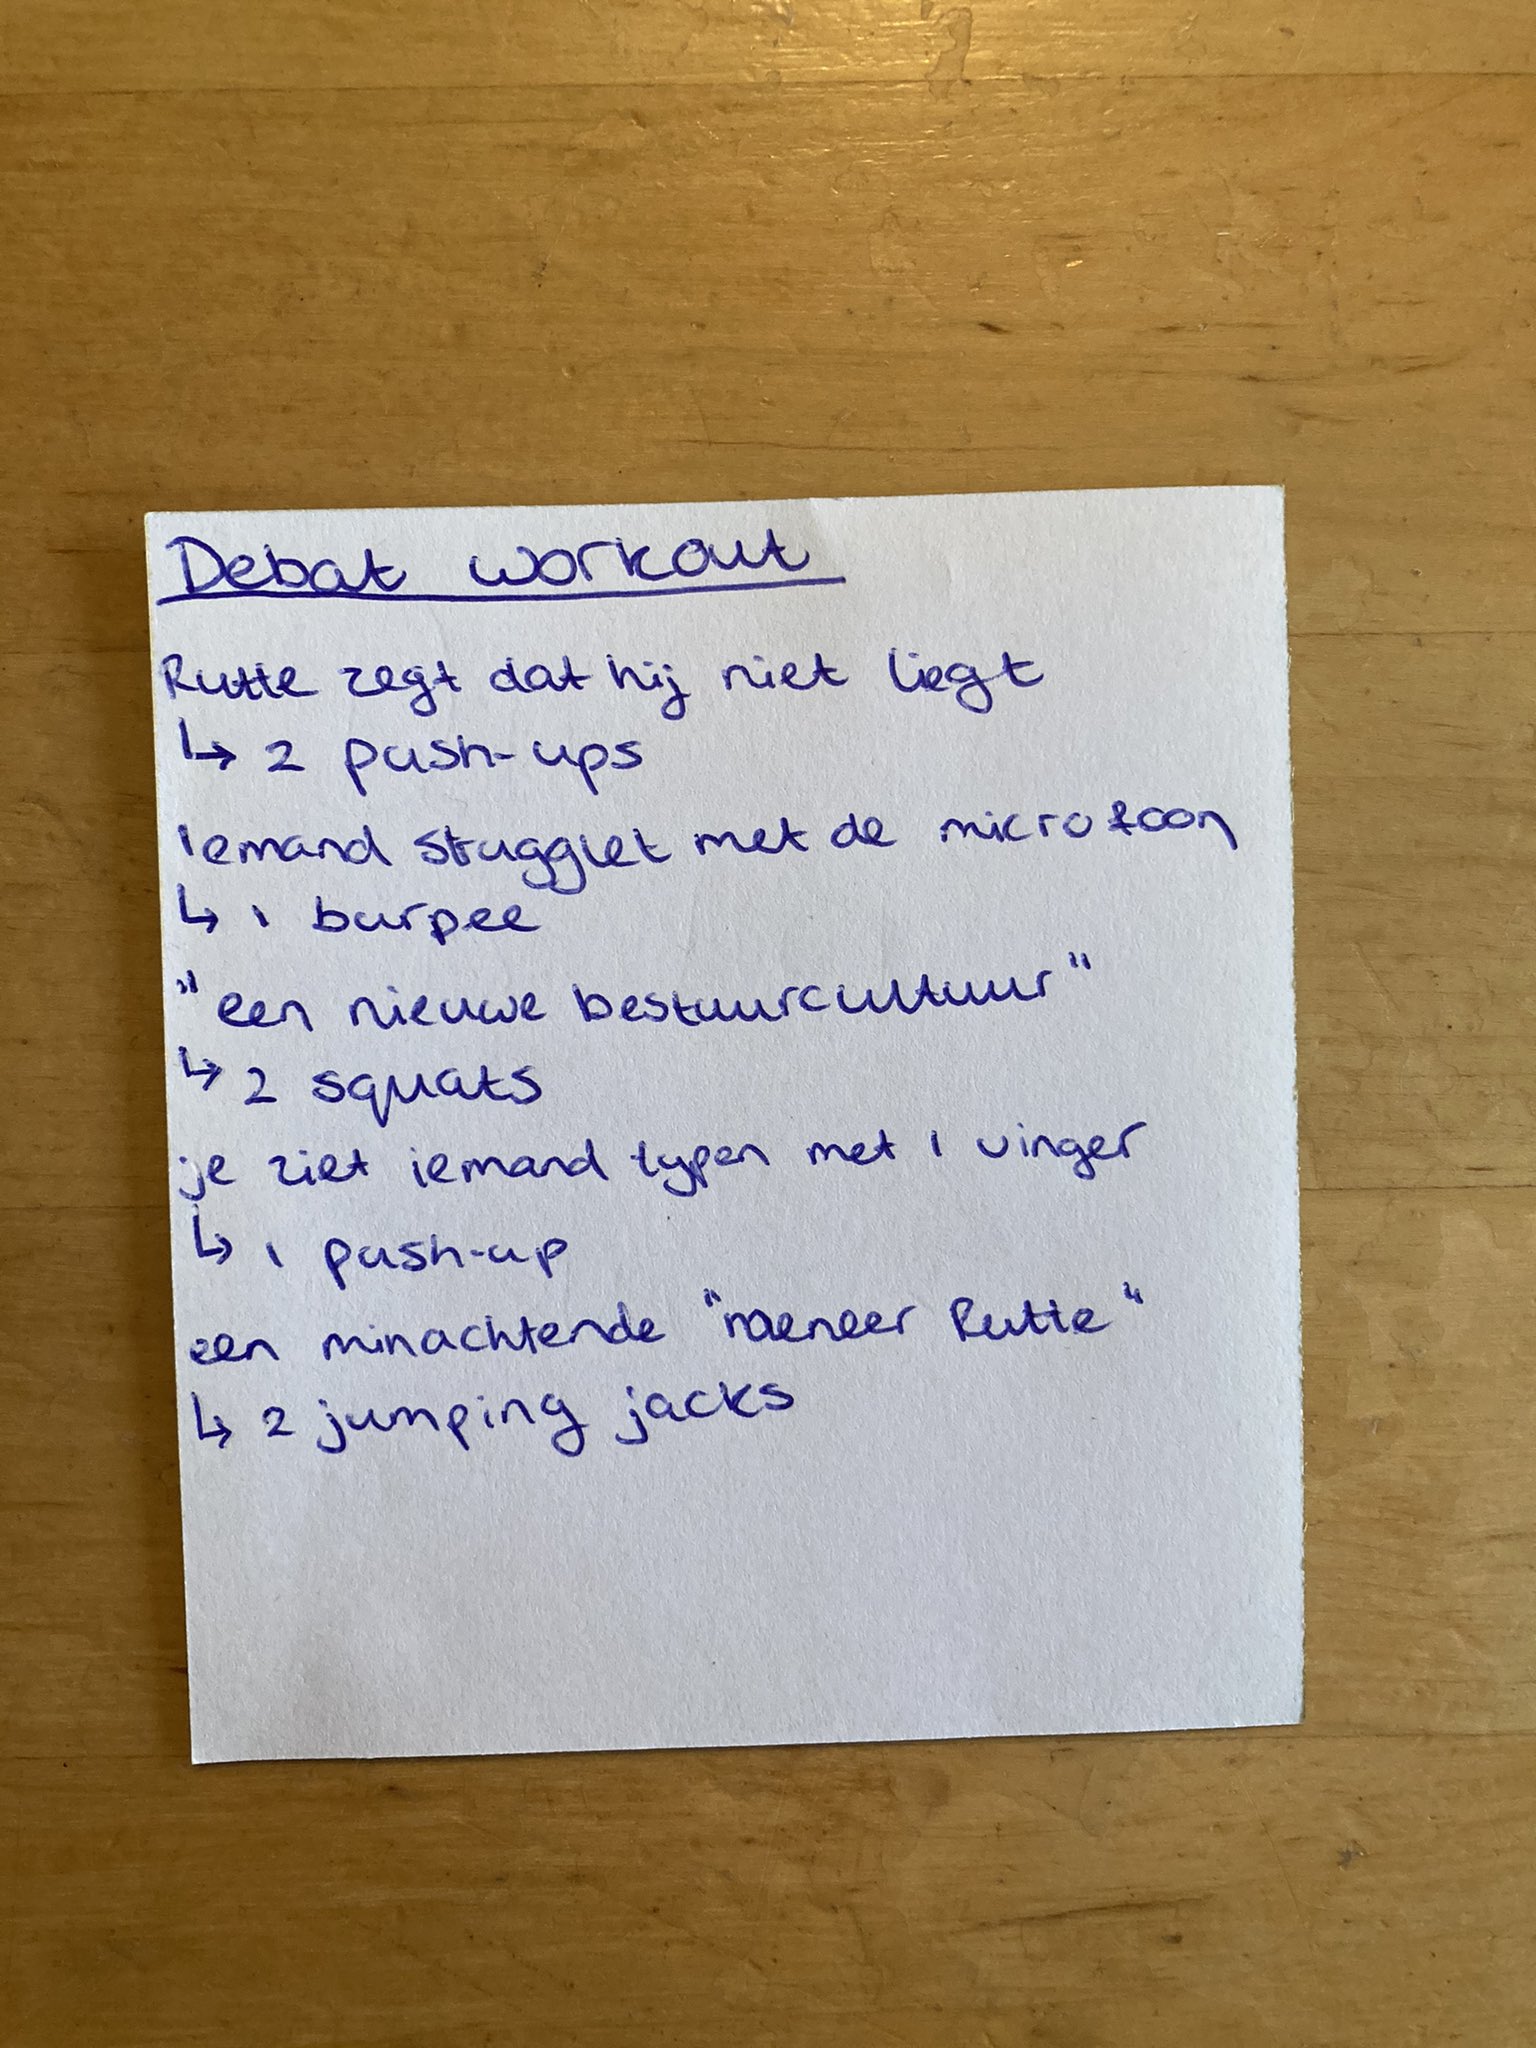 Debat workout
Rutte zegt dat hij niet liegt
↳ 2 push-ups
Iemand strugglet met de microfoon
↳ 1 burpee
"een nieuwe bestuurcultuur"
↳ 2 squats
je ziet iemand typen met 1 vinger
↳ 1 push-up
een minachtende "meneer Rutte"
↳ 2 jumping jacks